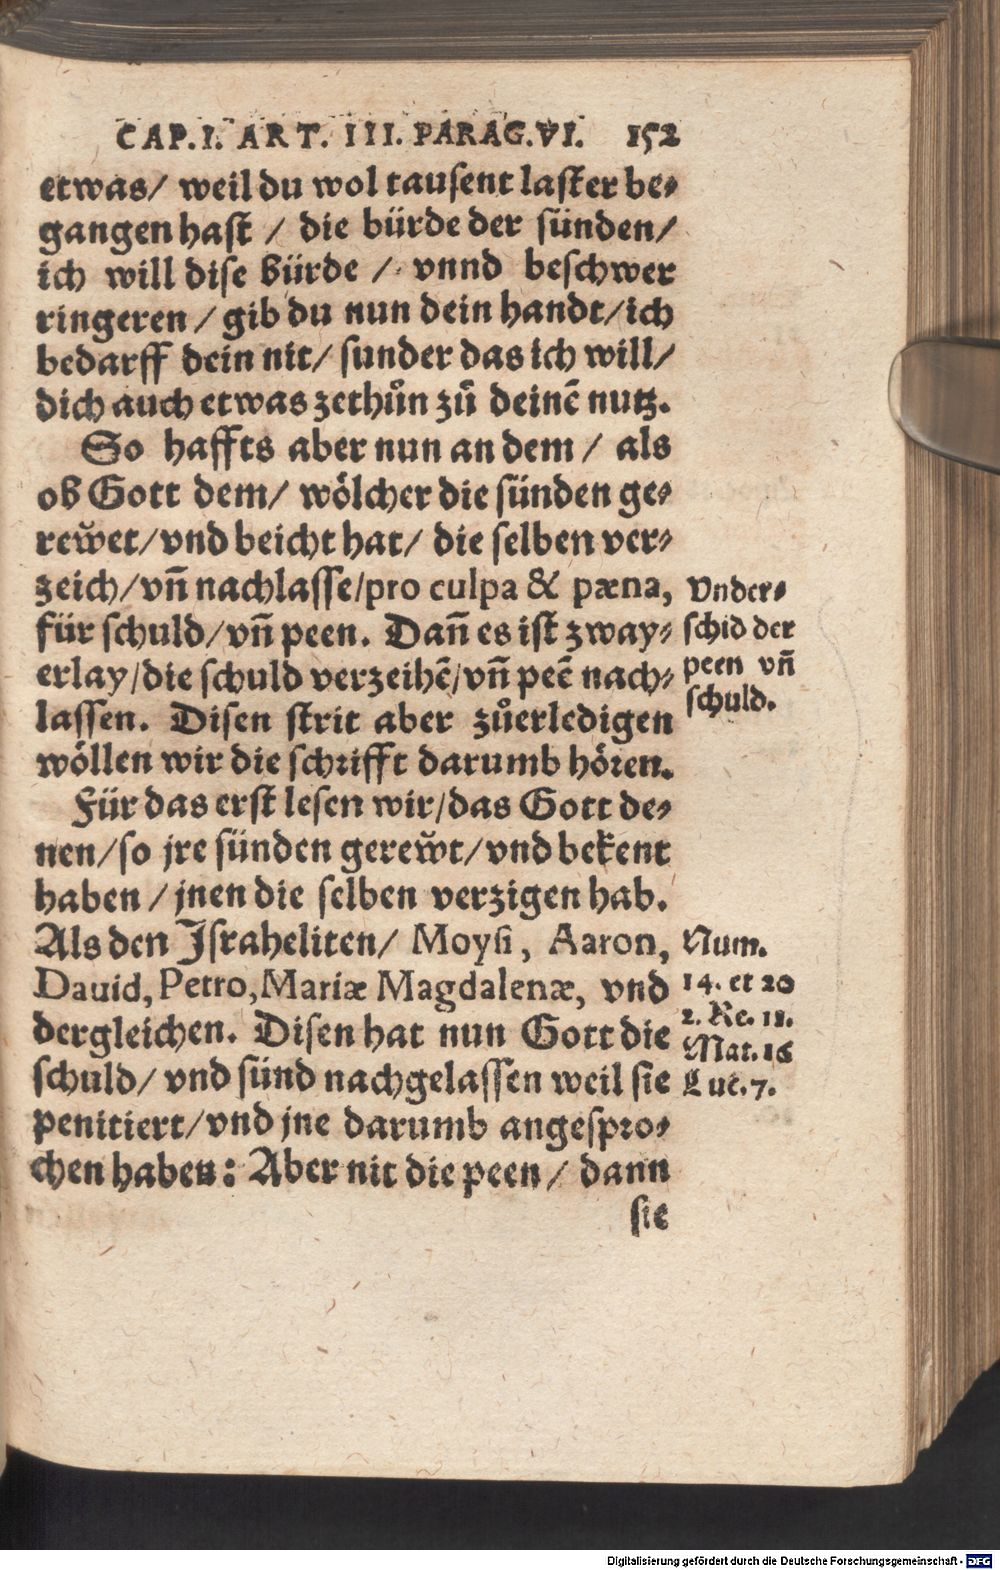 CAP. I. ART. III. PARAG. VI. 152
etwas/ weil du wol tausent laster be⸗
gangen hast / die bürde der sünden/
ich will dise bürde / vnnd beschwer
ringeren / gib du nun dein handt/ich
bedarff dein nit/ sunder das ich will/
dich auch etwas zethůn zů deinē nutz.
So haffts aber nun an dem / als
ob Gott dem/ wölcher die sünden ge⸗
rew̆et/vnd beicht hat/ die selben ver⸗
zeich/vñ nachlasse/pro culpa & pæna,
für schuld/vñ peen. Dañ es ist zway⸗
erlay/die schuld verzeihē/vñ peē nach⸗
lassen. Disen strit aber zůerledigen
wöllen wir die schrifft darumb hören.
Vnder⸗
schid der
peen vñ
schuld.
Für das erst lesen wir/das Gott de⸗
nen/so jre sünden gerew̆t/vnd bekent
haben / jnen die selben verzigen hab.
Als den Israheliten/ Moysi, Aaron,
Dauid, Petro, Mariæ Magdalenæ, vnd
dergleichen. Disen hat nun Gott die
schuld/ vnd sünd nachgelassen weil sie
penitiert/vnd jne darumb angespro⸗
chen haben: Aber nit die peen / dann
Num.
14. et 20
2. Re. 12.
Mat. 16
Luc. 7.
sie
Digitalisierung gefördert durch die Deutsche Forschungsgemeinschaft - DFG